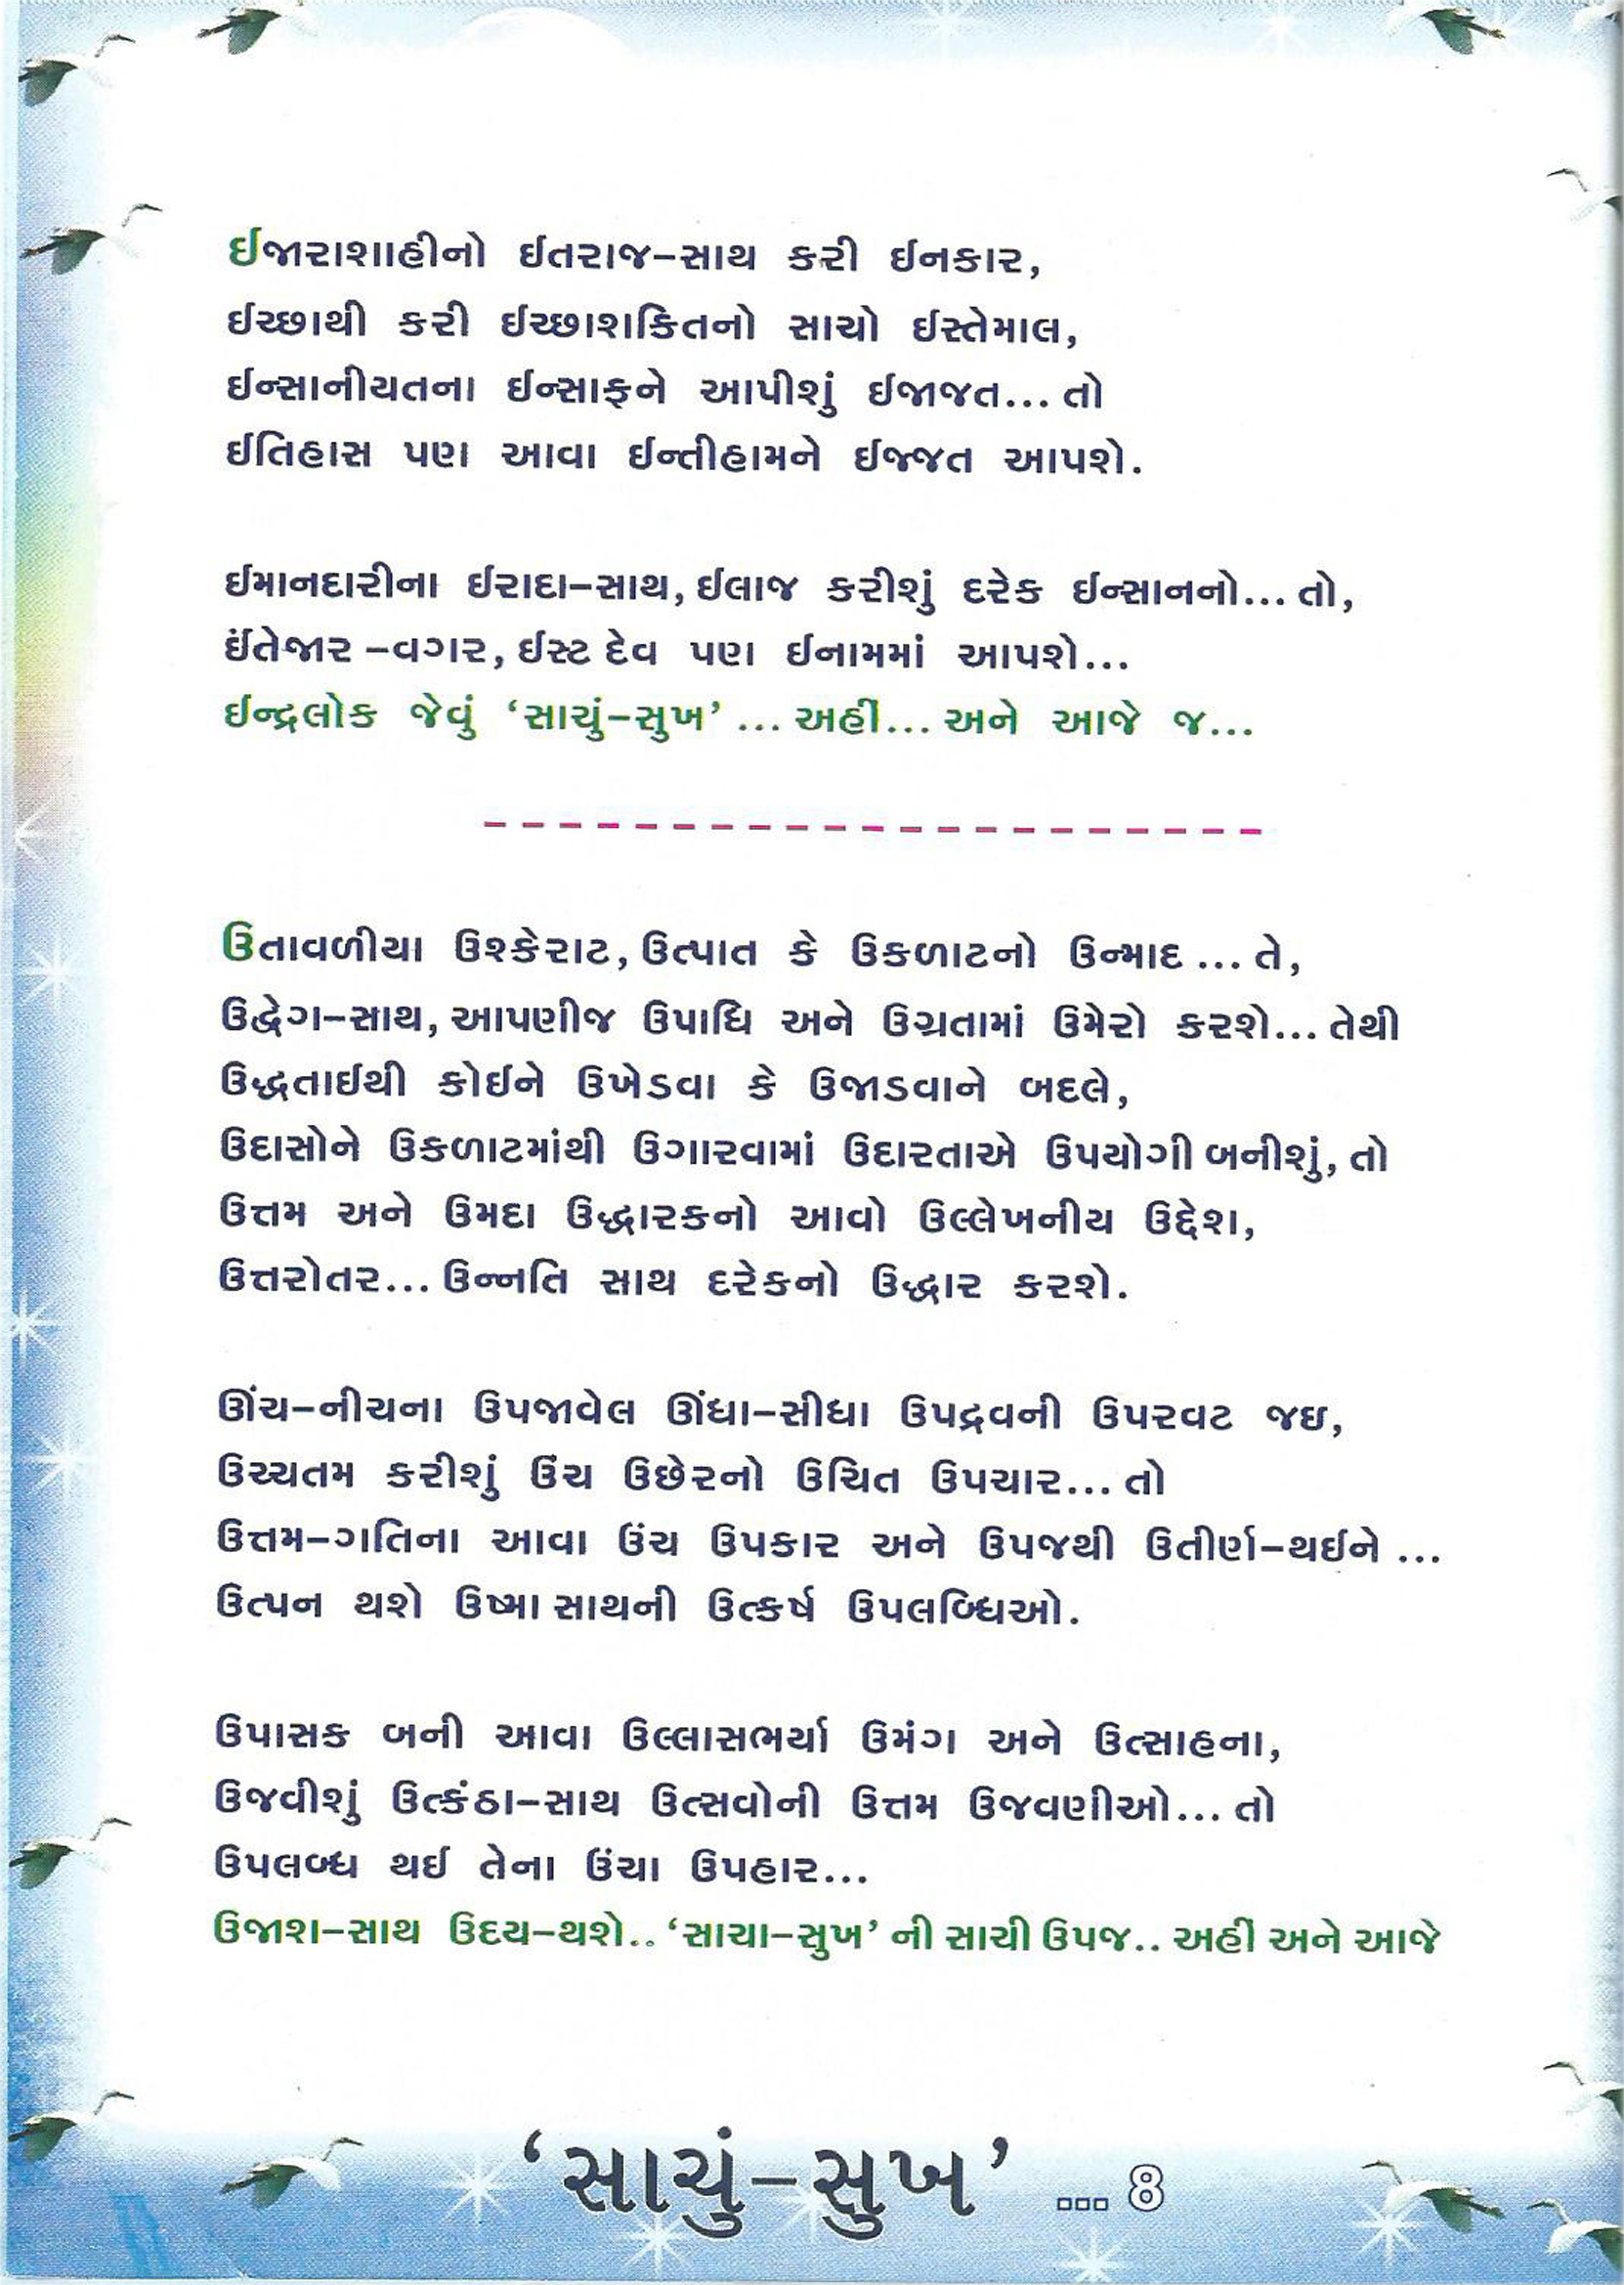 ઈજારાશાહીનો ઈતરાજ-સાથ કરી ઈનકાર,
ઈચ્છાથી કરી ઈચ્છાશકિતનો સાચો ઈસ્તેમાલ,
ઈન્સાનીયતના ઈન્સાફને આપીશું ઈજાજત... તો
ઈતિહાસ પણ આવા ઈન્તીહામને ઈજ્જત આપશે.
ઈમાનદારીના ઈરાદા-સાથ, ઈલાજ કરીશું દરેક ઈન્સાનનો... તો,
ઈંતેજાર -વગર, ઈસ્ટ દેવ પણ ઈનામમાં આપશે...
ઈન્દ્રલોક જેવું ‘સાચું-સુખ’ ... અહીં... અને આજે જ...
ઉતાવળીયા ઉશ્કેરાટ, ઉત્પાત કે ઉકળાટનો ઉન્માદ ... તે,
ઉદ્વેગ-સાથ, આપણીજ ઉપાધિ અને ઉગ્રતામાં ઉમેરો કરશે... તેથી
ઉદ્ધતાઈથી કોઈને ઉખેડવા કે ઉજાડવાને બદલે,
ઉદાસોને ઉકળાટમાંથી ઉગારવામાં ઉદારતાએ ઉપયોગી બનીશું, તો
ઉત્તમ અને ઉમદા ઉદ્ધારકનો આવો ઉલ્લેખનીય ઉદ્દેશ,
ઉત્તરોતર... ઉન્નતિ સાથ દરેકનો ઉદ્ધાર કરશે.
ઊંચ-નીચના ઉપજાવેલ ઊંધા-સીધા ઉપદ્રવની ઉપરવટ જઇ,
ઉચ્ચતમ કરીશું ઉંચ ઉછેરનો ઉચિત ઉપચાર... તો
ઉત્તમ-ગતિના આવા ઉંચ ઉપકાર અને ઉપજથી ઉતીર્ણ-થઈને ...
ઉત્પન થશે ઉષ્મા સાથની ઉત્કર્ષ ઉપલબ્ધિઓ.
ઉપાસક બની આવા ઉલ્લાસભર્યા ઉમંગ અને ઉત્સાહના,
ઉજવીશું ઉત્કંઠા-સાથ ઉત્સવોની ઉત્તમ ઉજવણીઓ... તો
ઉપલબ્ધ થઈ તેના ઉંચા ઉપહાર...
ઉજાશ-સાથ ઉદય-થશે.. ‘સાચા-સુખ’ ની સાચી ઉપજ.. અહીં અને આજે
‘સાચું-સુખ’ ... 8